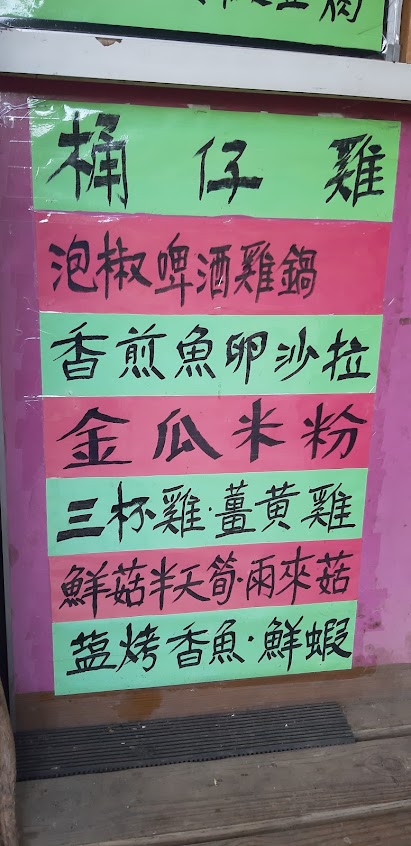 桶仔雞
泡椒啤酒雞鍋
香煎魚卵沙拉
金瓜米粉
三杯雞·薑黃雞
鮮菇半天筍·雨來菇
塩烤香魚·鮮蝦